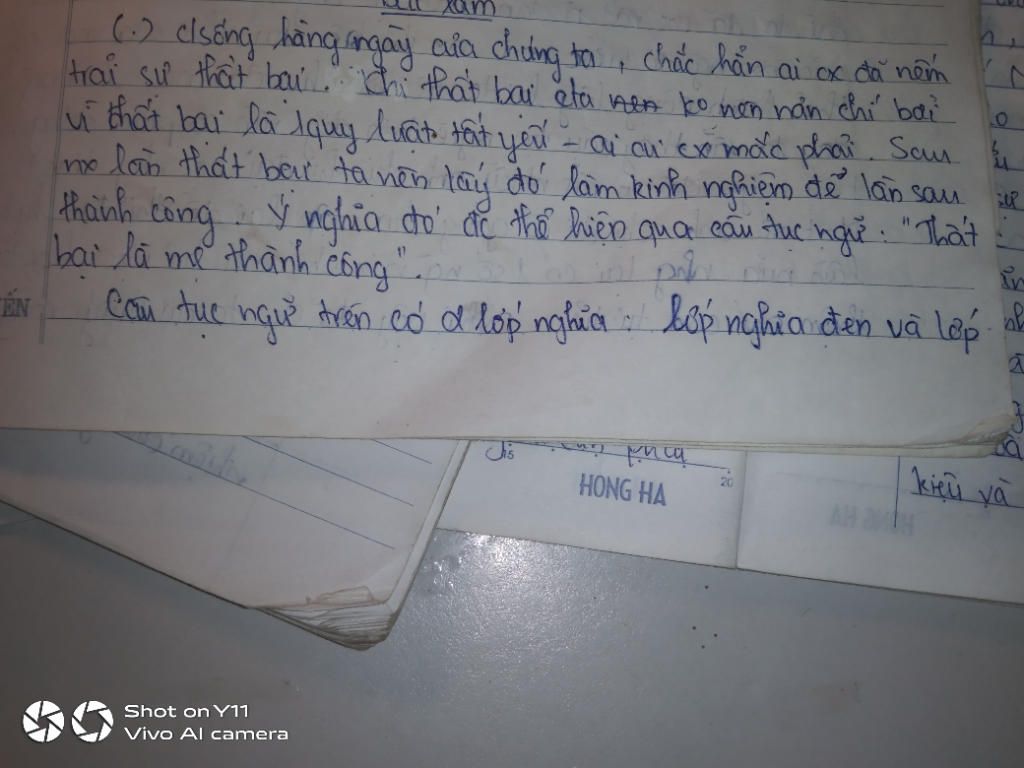 (.) c/sống hàng ngày của chúng ta, chắc hẳn ai cx đã nếm
trải sự thất bại. Khi thất bại cta nên ko nên nản chí bởi
vì thất bại là 1 quy luật tất yếu - ai ai cx mắc phải. Sau
mỗi lần thất bại ta nên lấy đó làm kinh nghiệm để lần sau
thành công. Ý nghĩa đó đc thể hiện qua câu tục ngữ: "Thất
bại là mẹ thành công".
Câu tục ngữ trên có 2 lớp nghĩa: lớp nghĩa đen và lớp
ẾN
15
20
HONG HA
kiệu và
Shot on Y11
Vivo AI camera